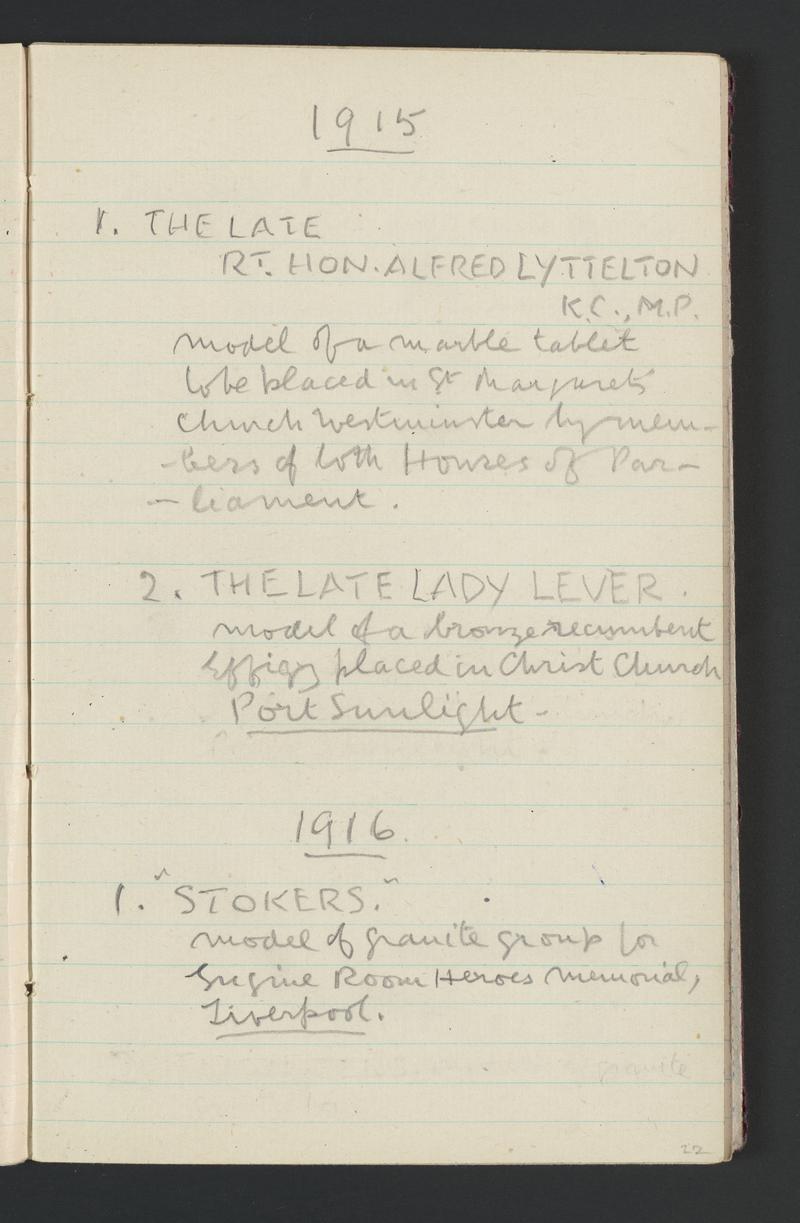 1915
1. THE LATE
RT. HON. ALFRED LYTTELTON
K.C., M.P.
model of a marble tablet
to be placed in St Margarets
Church Westminster by mem-
-bers of both Houses of Par-
- liament.
2. THE LATE LADY LEVER.
model of a bronze recumbent
Effigy placed in Christ Church
Port Sunlight -
1916.
1. "STOKERS."
model of granite group for
Engine Room Heroes Memorial,
Liverpool.
granite
22